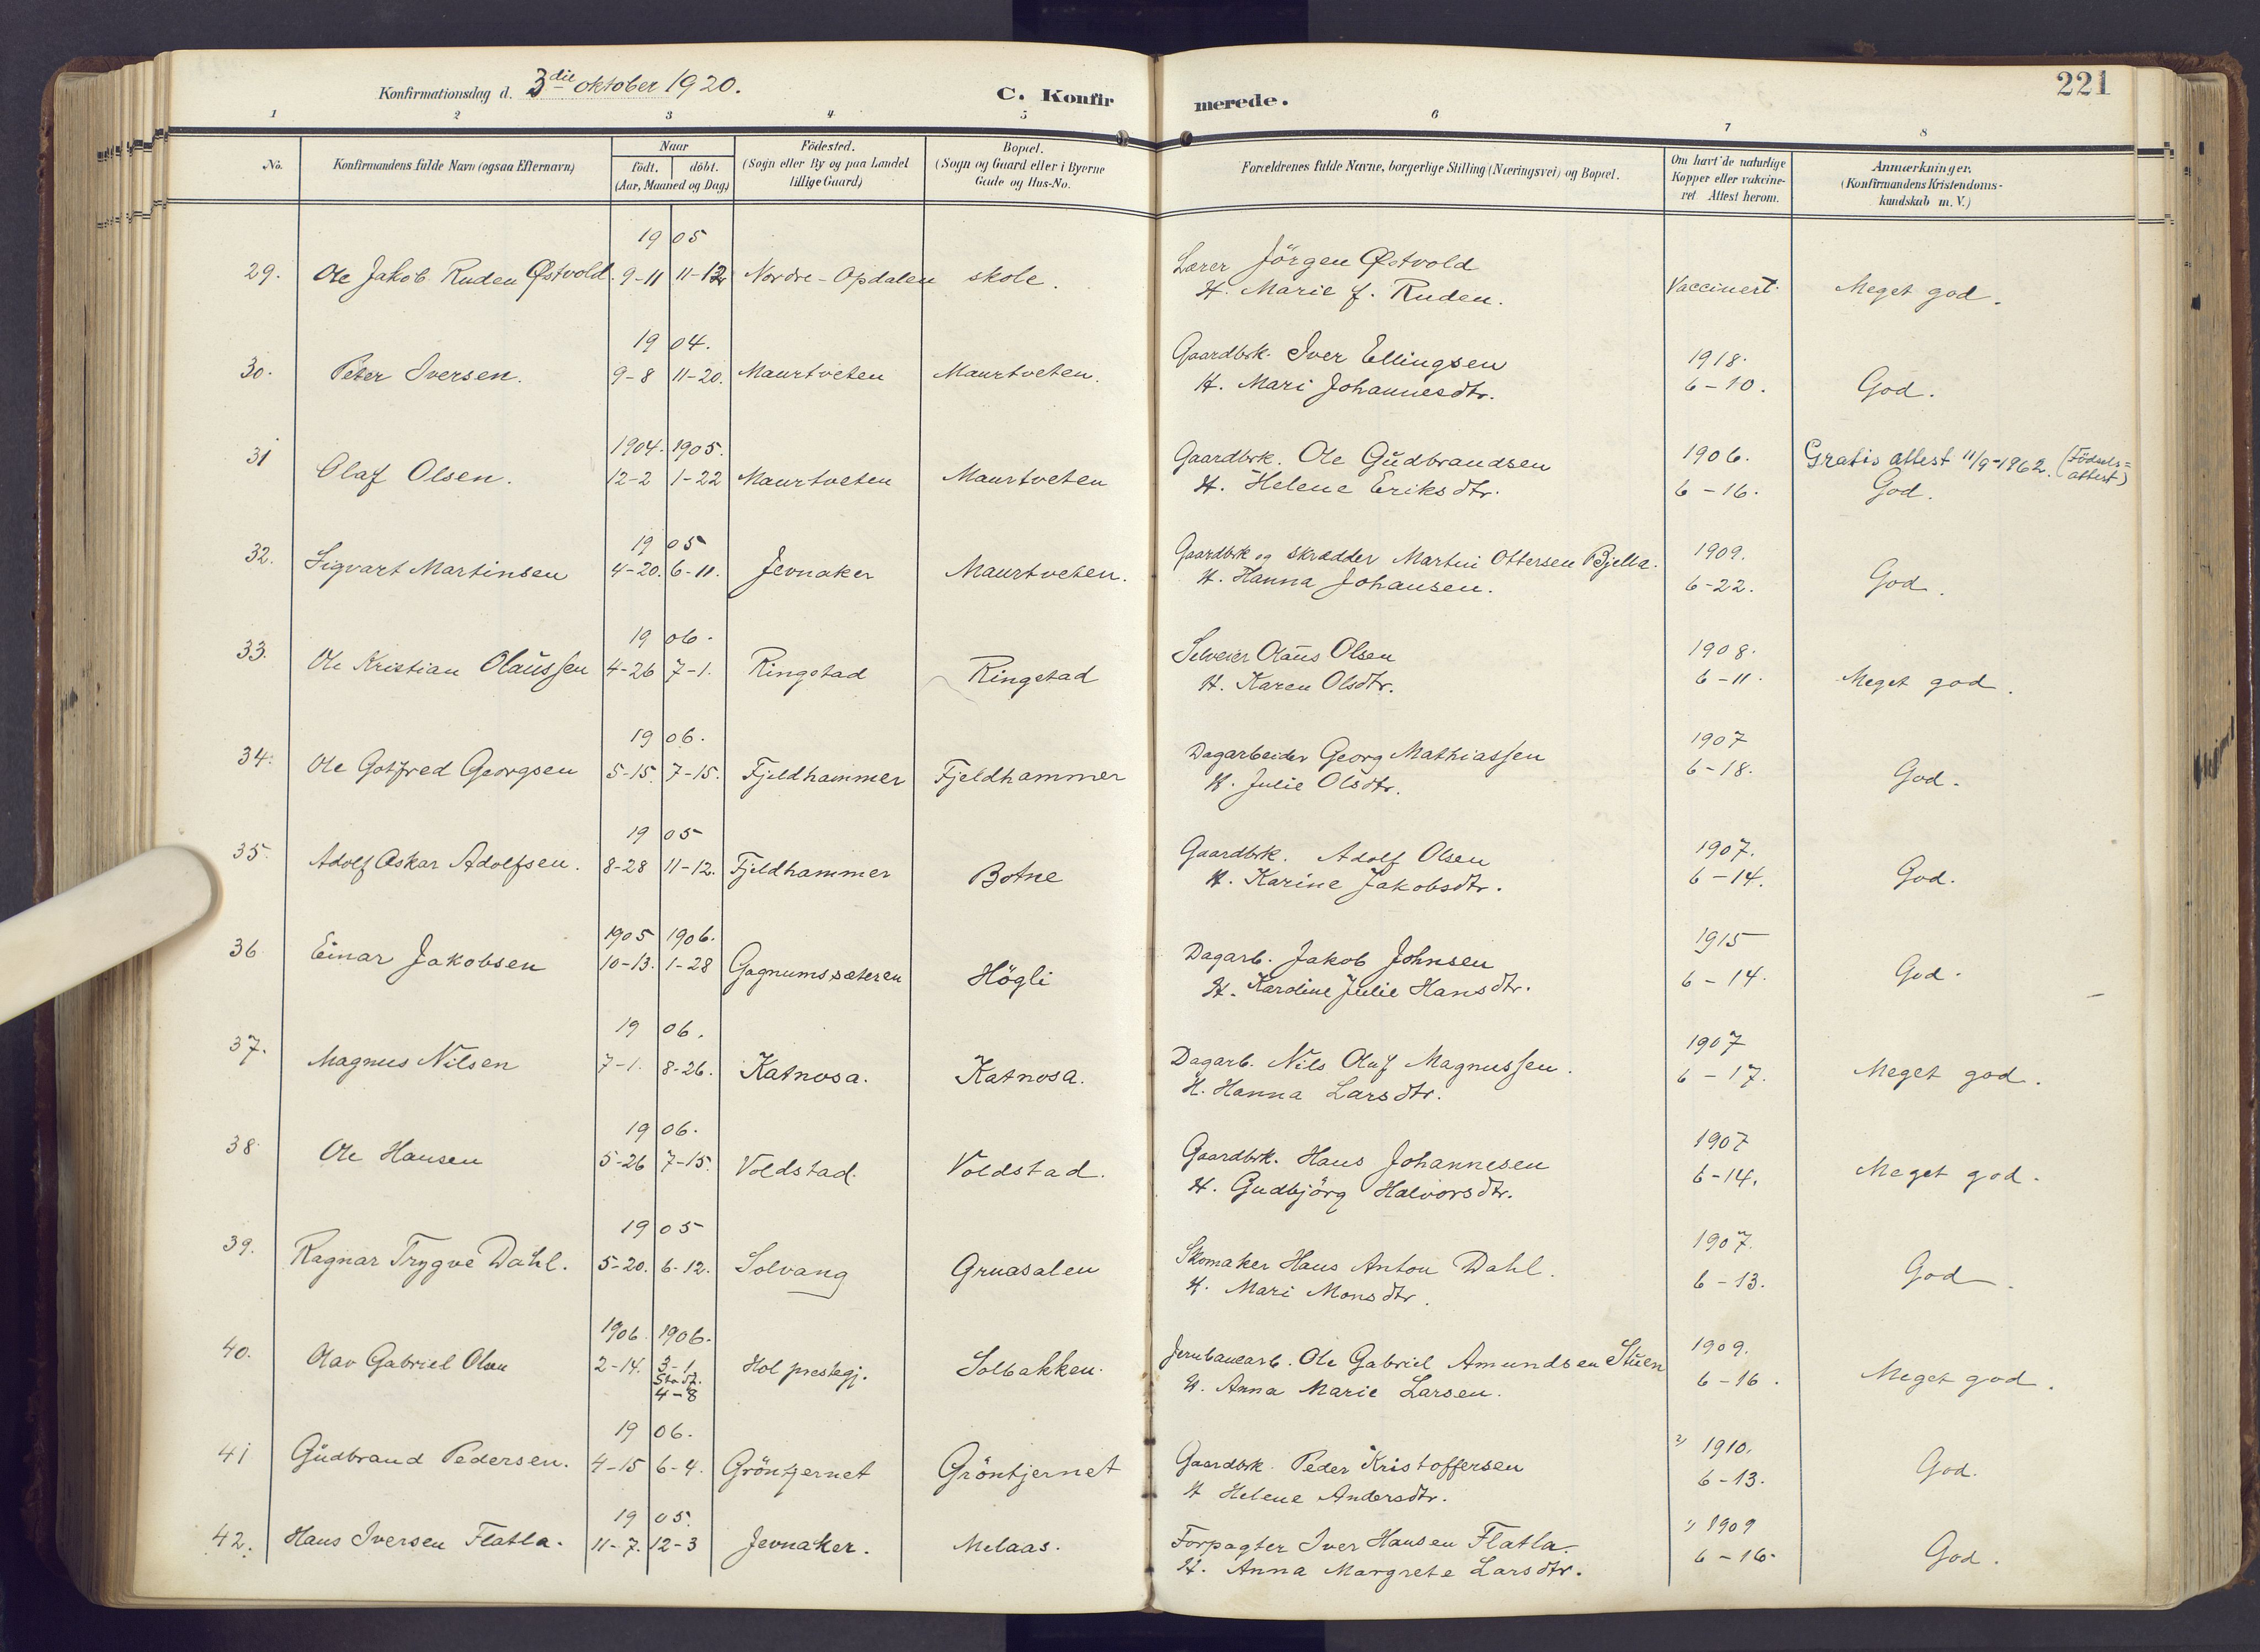 Konfirmationsdag d. 3die oktober 1920.
C. Konfirmerede.
221
1 2 3 4 5 6 7 8
No. Konfirmandens fulde Navn (ogsaa Efternavn) Naar födt. döbt. (Aar, Maaned og Dag) Födested. (Sogn eller By og paa Landet tillige Gaard) Bopæl. (Sogn og Gaard eller i Byerne Gade og Hus-No. Forældrenes fulde Navne, borgerlige Stilling (Næringsvei) og Bopæl. Om havt de naturlige Kopper eller vakcineret Attest herom. Anmærkninger. (Konfirmandens Kristendomskundskab m. V.)
1905
29. Ole Jakob Ruden Østvold. 9-11 11-12 Nordre-Opdalen skole. Lærer Jörgen Østvold
H. Marie f. Ruden. Vaccinert. Meget god.
1904.
30. Peter Iversen. 9-8 11-20. Maurtveten Maurtveten. Gaardbrk. Iver Ellingsen 1918.
H. Mari Johannesdtr. 6-10. God.
1904. 1905.
31 Olaf Olsen. 12-2 1-22 Maurtveten Maurtveten Gaardbrk. Ole Gudbrandsen 1906. Gratis attest 11/9-1962. (Födselsattest)
H. Helene Eriksdtr. 6-16. God.
1905
32. Sigvart Martinsen 4-20. 6-11. Jevnaker Maurtveten. Gaardbrk og skrædder Martin Ottersen Bjella. 1909.
H. Hanna Johansen. 6-22. God.
1906.
33. Ole Kristian Olaussen 4-26 7-1. Ringstad Ringstad Selveier Olaus Olsen 1908.
H. Karen Olsdtr. 6-11. Meget god.
1906.
34. Ole Gotfred Georgsen 5-15. 7-15. Fjeldhammer Fjeldhammer Dagarbeider Georg Mathiassen 1907
H. Julie Olsdtr. 6-18. God.
1905
35. Adolf Oskar Adolfsen. 8-28 11-12. Fjeldhammer Botne Gaardbrk. Adolf Olsen 1907.
H. Karine Jakobsdtr. 6-14. God.
1905 1906.
36 Einar Jakobsen 10-13. 1-28 Gagnumssæteren Högli Dagarb. Jakob Johnsen 1915
H. Karoline Julie Hansdtr. 6-14. God.
1906.
37. Magnus Nilsen 7-1. 8-26. Katnosa. Katnosa. Dagarb. Nils Olaf Magnussen. 1907
H. Hanna Larsdtr. 6-17. Meget god.
1906.
38 Ole Hansen 5-26 7-15. Voldstad. Voldstad. Gaardbrk. Hans Johannesen 1907
H. Gudbjörg Halvorsdtr. 6-14. Meget god.
1905
39. Ragnar Trygve Dahl. 5-20. 6-12. Solvang Gruasalen Skomaker Hans Anton Dahl. 1907.
H. Mari Monsdtr. 6-13. God.
1906. 1906.
40. Olav Gabriel Olsen 2-14. 3-1. Stadf. 4-8 Hol prestegj. Solbakken. Jernbanearb. Ole Gabriel Amundsen Stuen 1909.
H. Anna Marie Larsen. 6-16. Meget god.
1906.
41 Gudbrand Pedersen. 4-15 6-4. Gröntjernet Gröntjernet Gaardbrk. Peder Kristoffersen 1910.
H Helene Andersdtr. 6-13. God.
1905.
42. Hans Iversen Flatla. 11-7. 12-3 Jevnaker. Melaas. Forpagter Iver Hansen Flatla. 1909
H. Anna Margrete Larsdtr. 6-16. God.